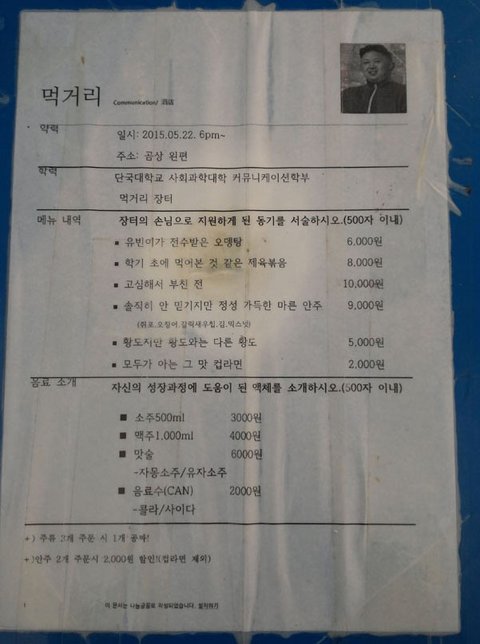 먹거리 Communication/ 酒店
약력 일시: 2015.05.22. 6pm~
주소: 곰상 왼편
학력 단국대학교 사회과학대학 커뮤니케이션학부
먹거리 장터
메뉴 내역 장터의 손님으로 지원하게 된 동기를 서술하시오.(500자 이내)
▪ 유빈이가 전수받은 오뎅탕 6,000원
▪ 학기 초에 먹어본 것 같은 제육볶음 8,000원
▪ 고심해서 부친 전 10,000원
▪ 솔직히 안 믿기지만 정성 가득한 마른 안주 9,000원
(쥐포,오징어,갈릭새우칩,김,믹스넛)
▪ 황도지만 황도와는 다른 황도 5,000원
▪ 모두가 아는 그 맛 컵라면 2,000원
음료 소개 자신의 성장과정에 도움이 된 액체를 소개하시오.(500자 이내)
■ 소주500ml 3000원
■ 맥주1,000ml 4000원
■ 맛술 6000원
-자몽소주/유자소주
■ 음료수(CAN) 2000원
-콜라/사이다
+) 주류 3개 주문 시 1개 공짜!
+)안주 2개 주문시 2,000원 할인!(컵라면 제외)
이 문서는 나눔글꼴로 작성되었습니다. 설치하기